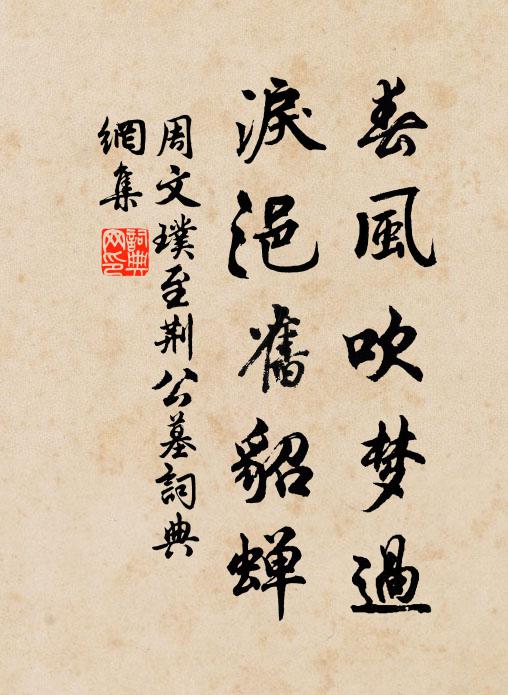 春風吹梦過
淚浥舊貂蟬
周文璞至荆公墓詞典
網集
詞典网印